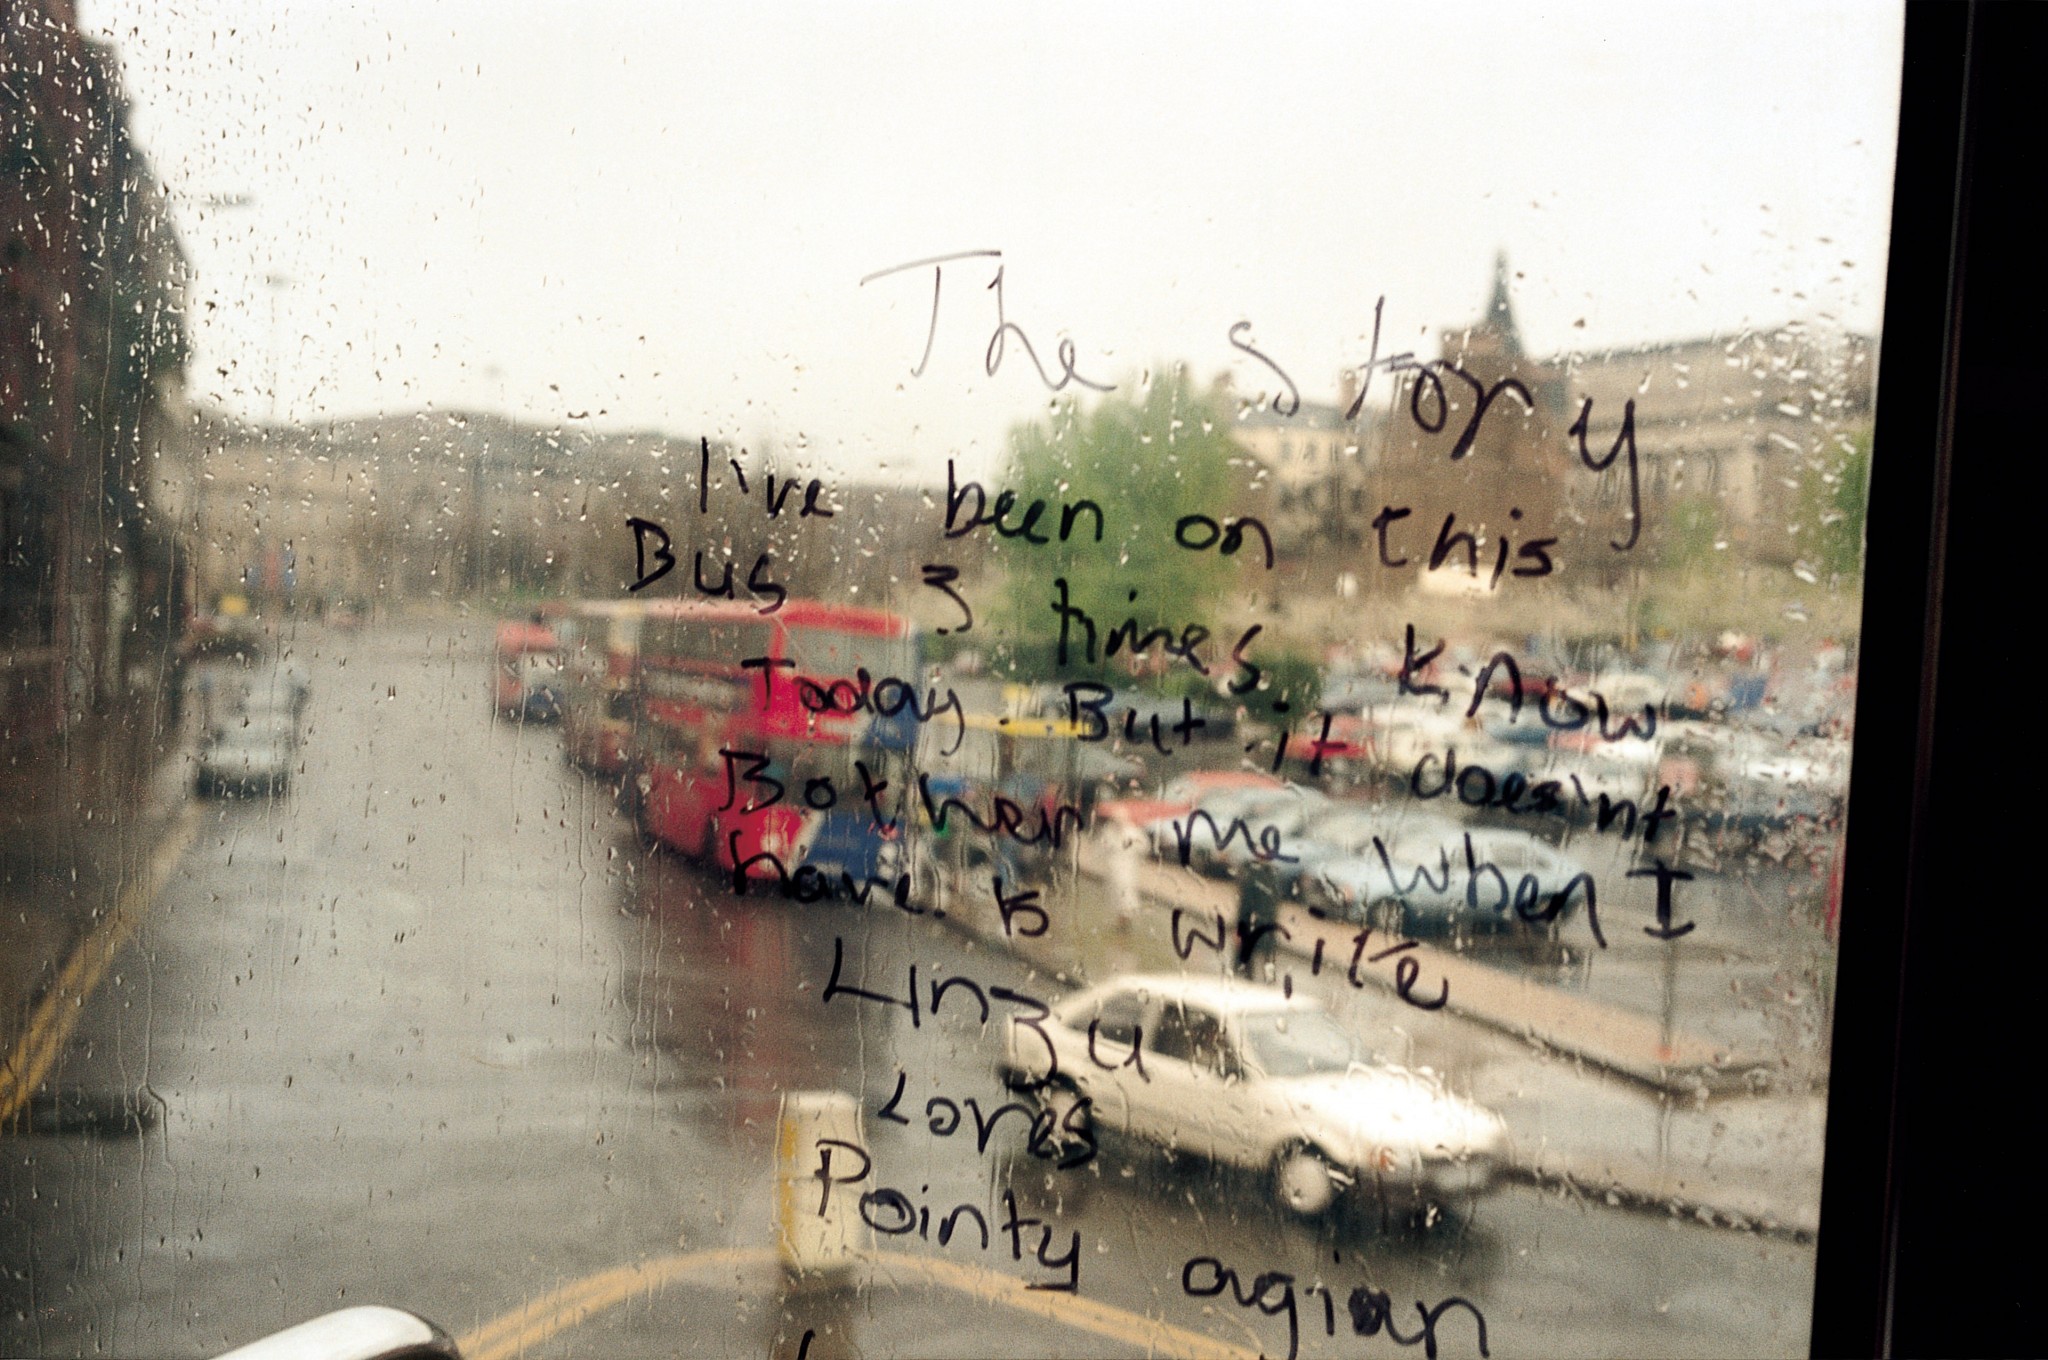 The story
I've been on this
Bus 3 times know
Today. But it does'nt
Bother me when I
have to write
Linzu
Loves
Pointy agian